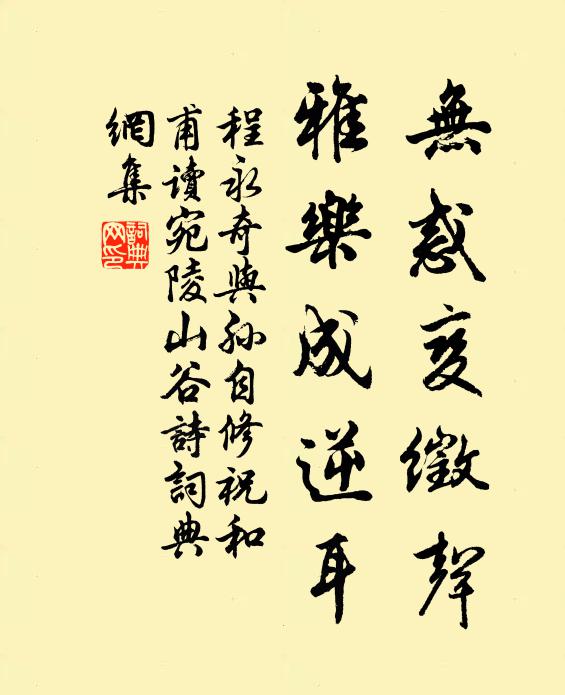 無惑變徵聲
雅樂成逆耳
程永奇與孫自修祝和
甫讀宛陵山谷詩詞典
網集
詞典網印